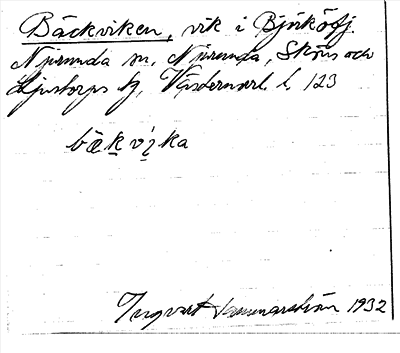 Bäckviken, vik i Björköfj.
Njurunda sn, Njurunda, Sköns och
Ljustorps tg, Västernorrl. l. 123
bäkvika
Ingvart Hammarström 1932